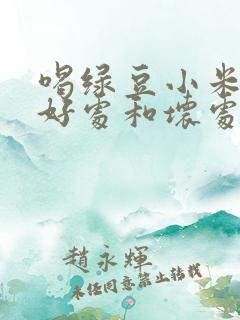 喝绿豆小米
好处和坏处
趙永輝
未经同意禁止转载